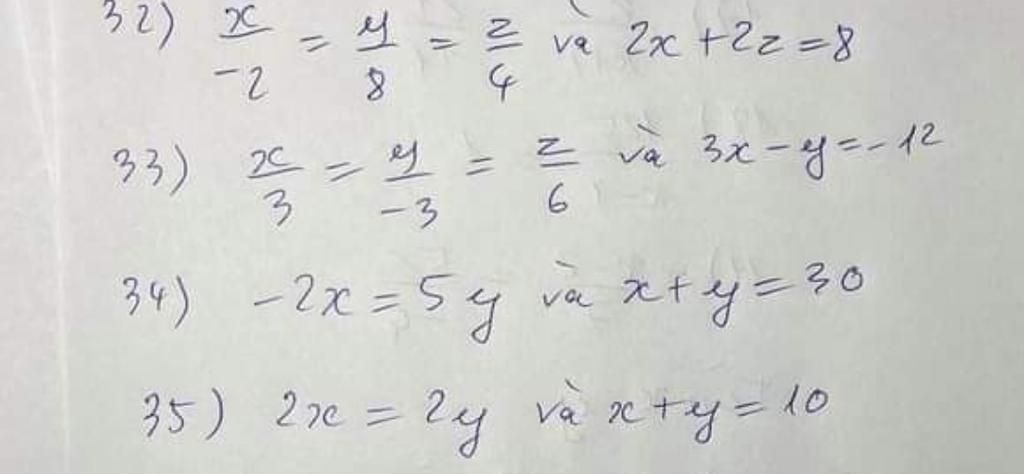 32) x/-2 = y/8 = z/4 và 2x + 2z = 8
33) x/3 = y/-3 = z/6 và 3x - y = -12
34) -2x = 5y và x + y = 30
35) 2x = 2y và x + y = 10